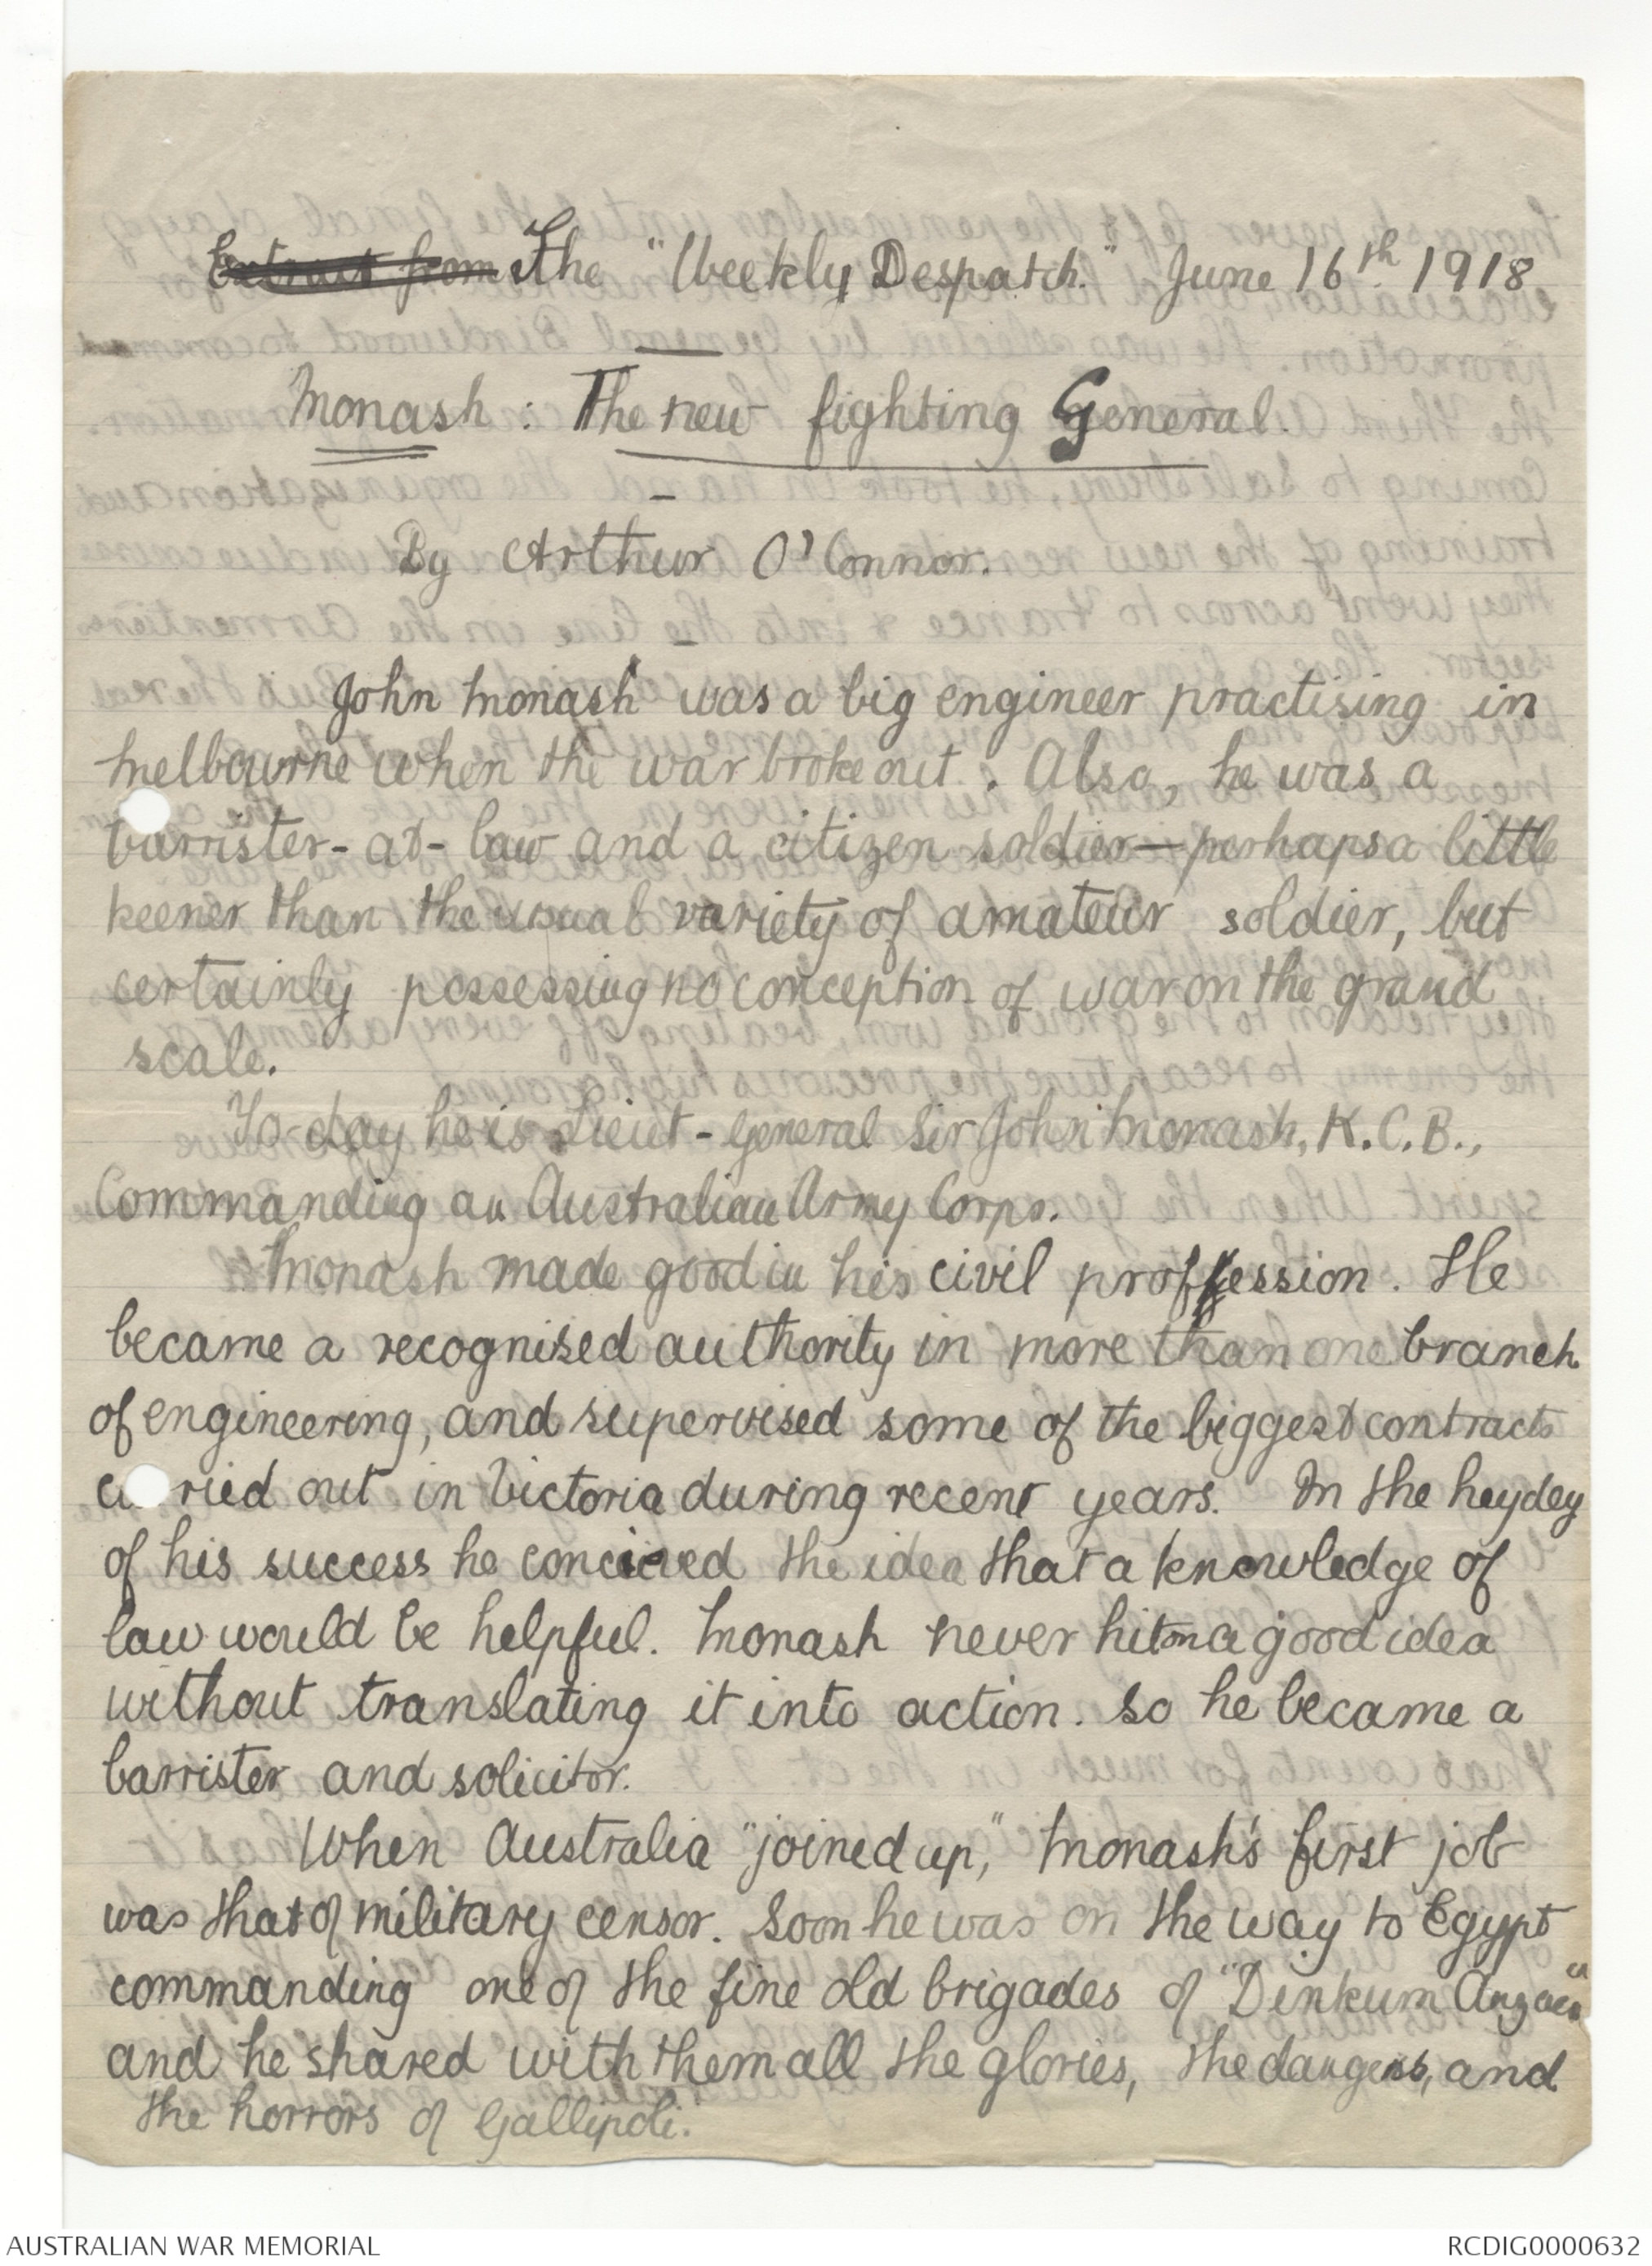 Extract from The "Weekly Despatch." June 16th 1918
Monash: The new fighting General.
By Arthur O'Connor.
John Monash was a big engineer practising in
Melbourne when the war broke out. Also, he was a
barrister-at-law and a citizen soldier—perhaps a little
keener than the usual variety of amateur soldier, but
certainly possessing no conception of war on the grand
scale.
To-day he is Lieut-General Sir John Monash, K.C.B.,
Commanding an Australian Army Corps.
Monash made good in his civil proffession. He
became a recognised authority in more than one branch
of engineering, and supervised some of the biggest contracts
carried out in Victoria during recent years. In the heydey
of his success he concieved the idea that a knowledge of
law would be helpful. Monash never hit on a good idea
without translating it into action. So he became a
barrister and solicitor.
When Australia "joined up," Monash's first job
was that of military censor. Soon he was on the way to Egypt
commanding one of the fine old brigades of "Dinkum Anzacs"
and he shared with them all the glories, the dangers, and
the horrors of Gallipoli.
AUSTRALIAN WAR MEMORIAL
RCDIG0000632